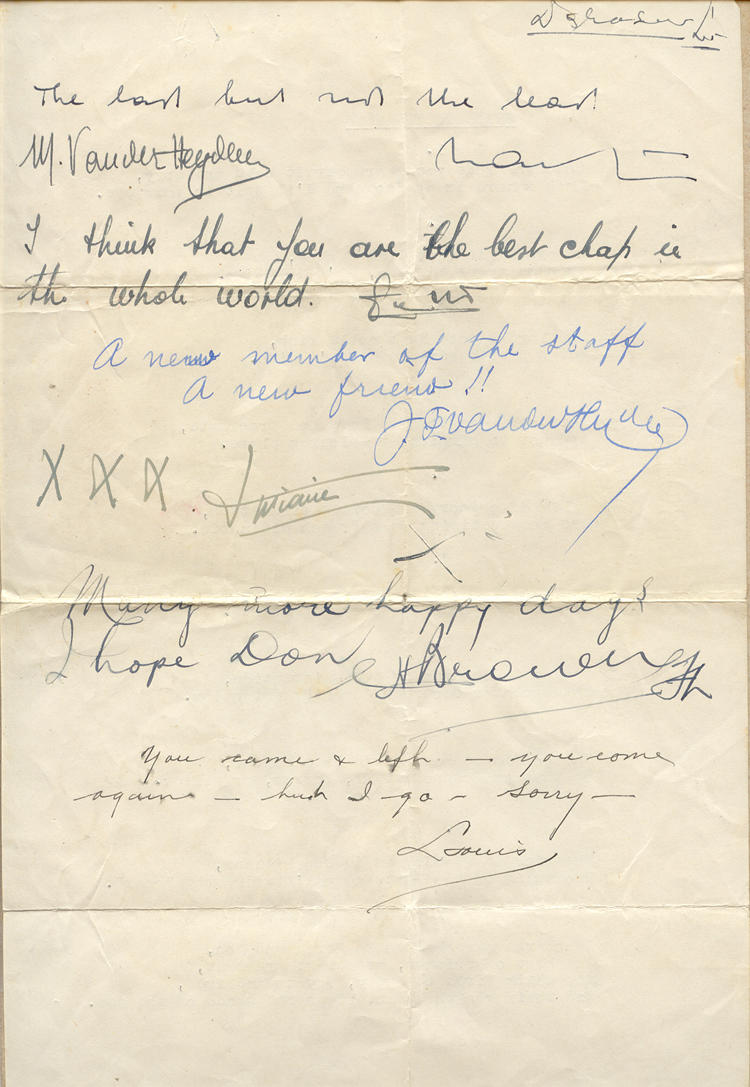 The last but not the least.
M. VanderHeyden
I think that you are the best chap in
the whole world.
A new member of the staff
A new friend!!
X X X
X
Many more happy days
I hope Don HBrown
You came & left – you come
again – but I go – Sorry –
Louis